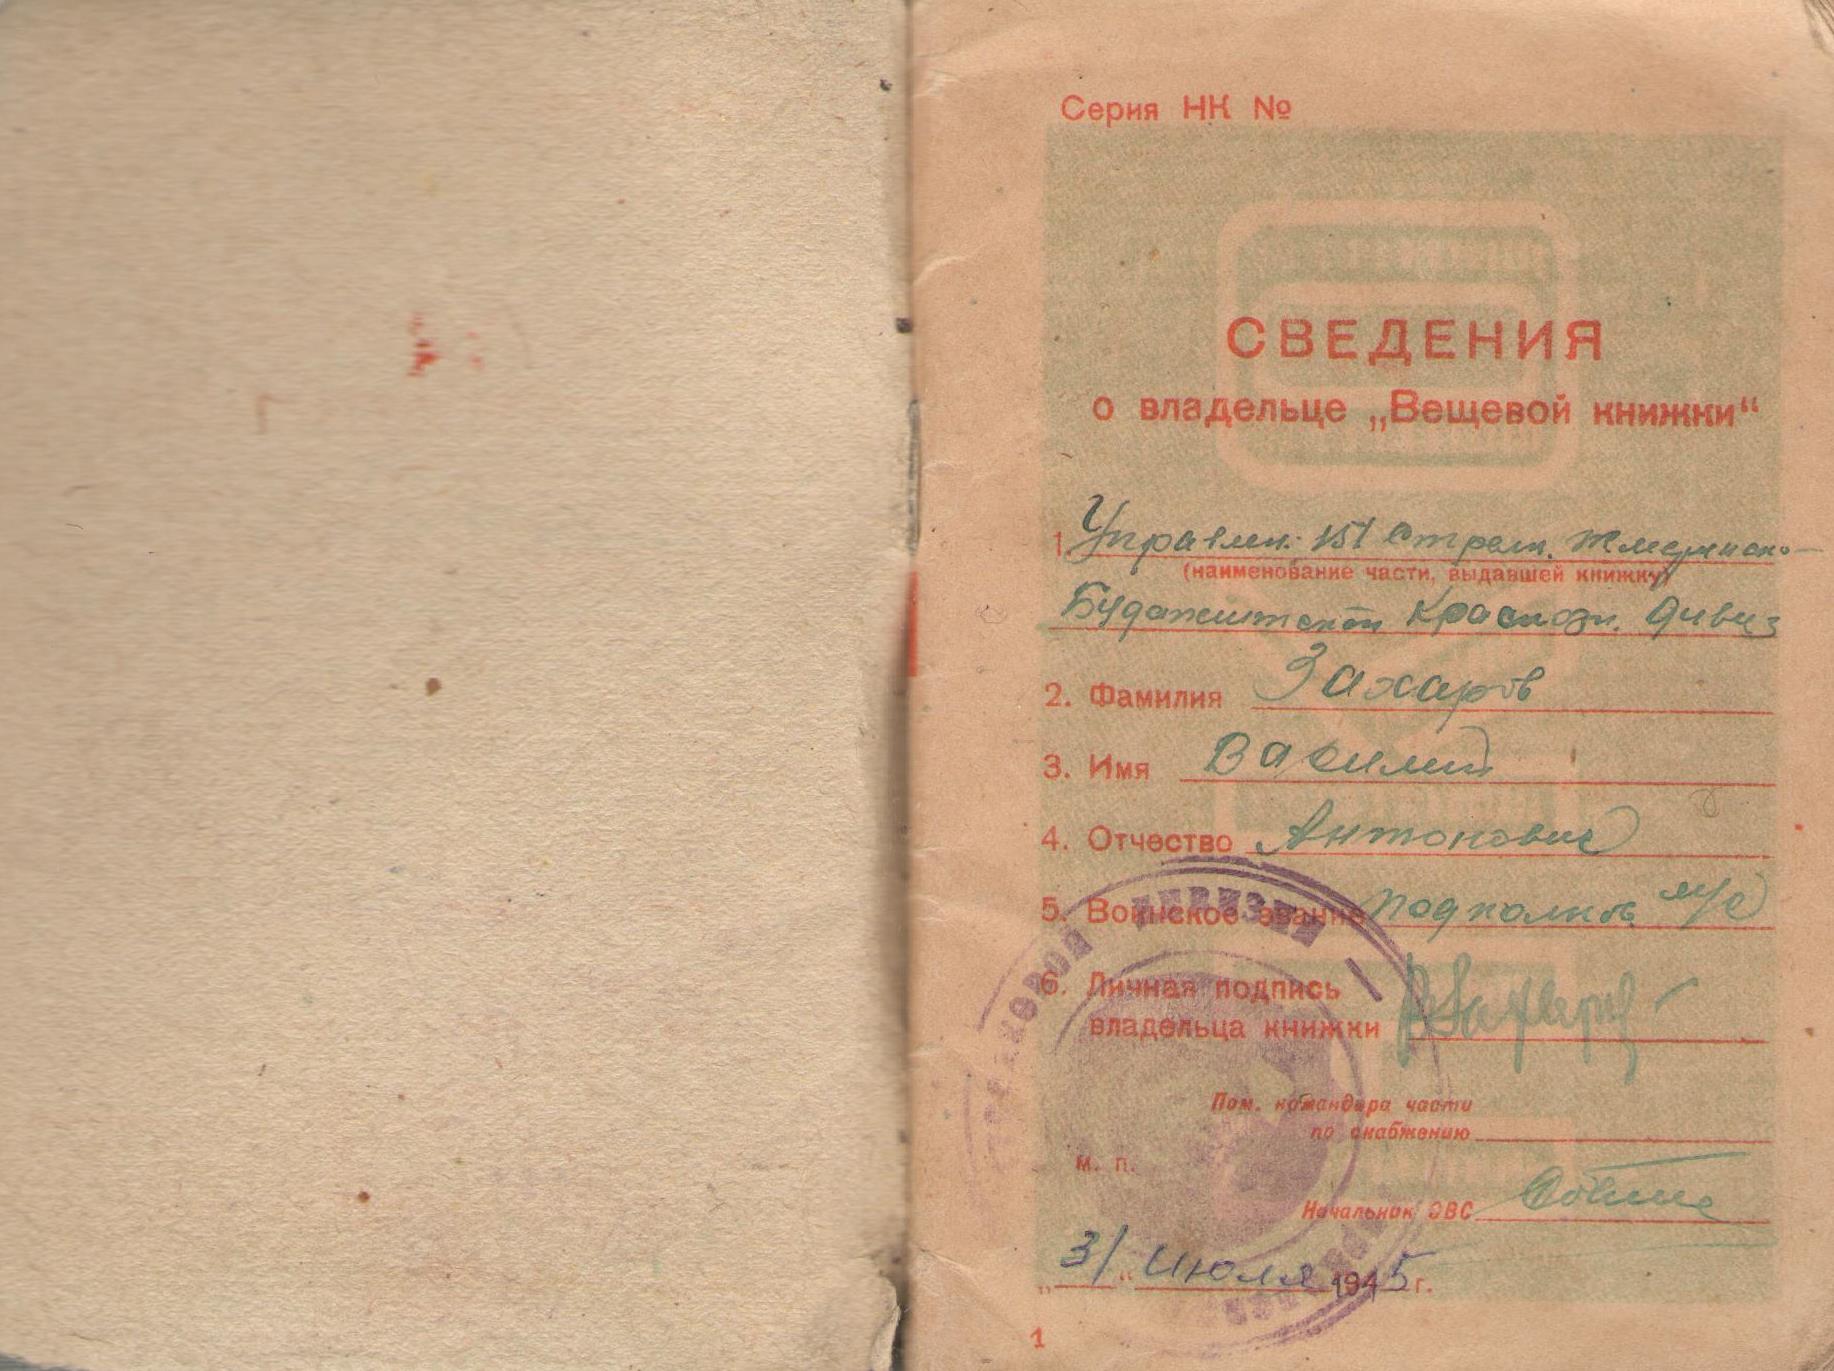 Серия НК №
СВЕДЕНИЯ
о владельце „Вещевой книжки“
1. Управлен. 151 Стрелк. Жмеринско-
(наименование части, выдавшей книжку)
Будапештской Краснозн. дивиз
2. Фамилия Захаров
3. Имя Василий
4. Отчество Антонович
5. Воинское звание подполков. м/с
6. Личная подпись
владельца книжки Захаров
Пом. командира части
по снабжению
М. п.
Начальник ОВС
„31“ Июля 1945 г.
1
СТРЕЛКОВОЙ ДИВИЗИИ